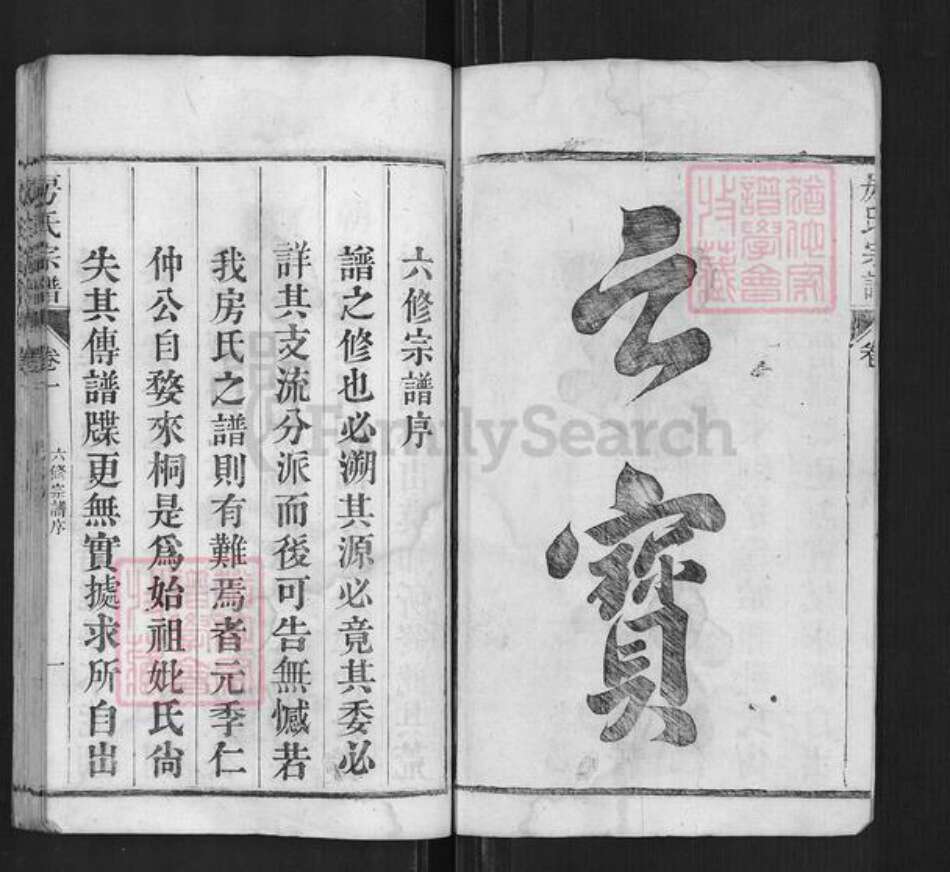 房氏宗譜
卷
之寶
猶他家譜學會收藏
六修宗譜序
譜之修也必溯其源必竟其委必
詳其支流分派而後可告無憾若
我房氏之譜則有難焉者元季仁
仲公自婺來桐是爲始祖妣氏尙
失其傳譜牒更無實據求所自出
房氏宗譜
卷一
六修宗譜序
一
FamilySearch